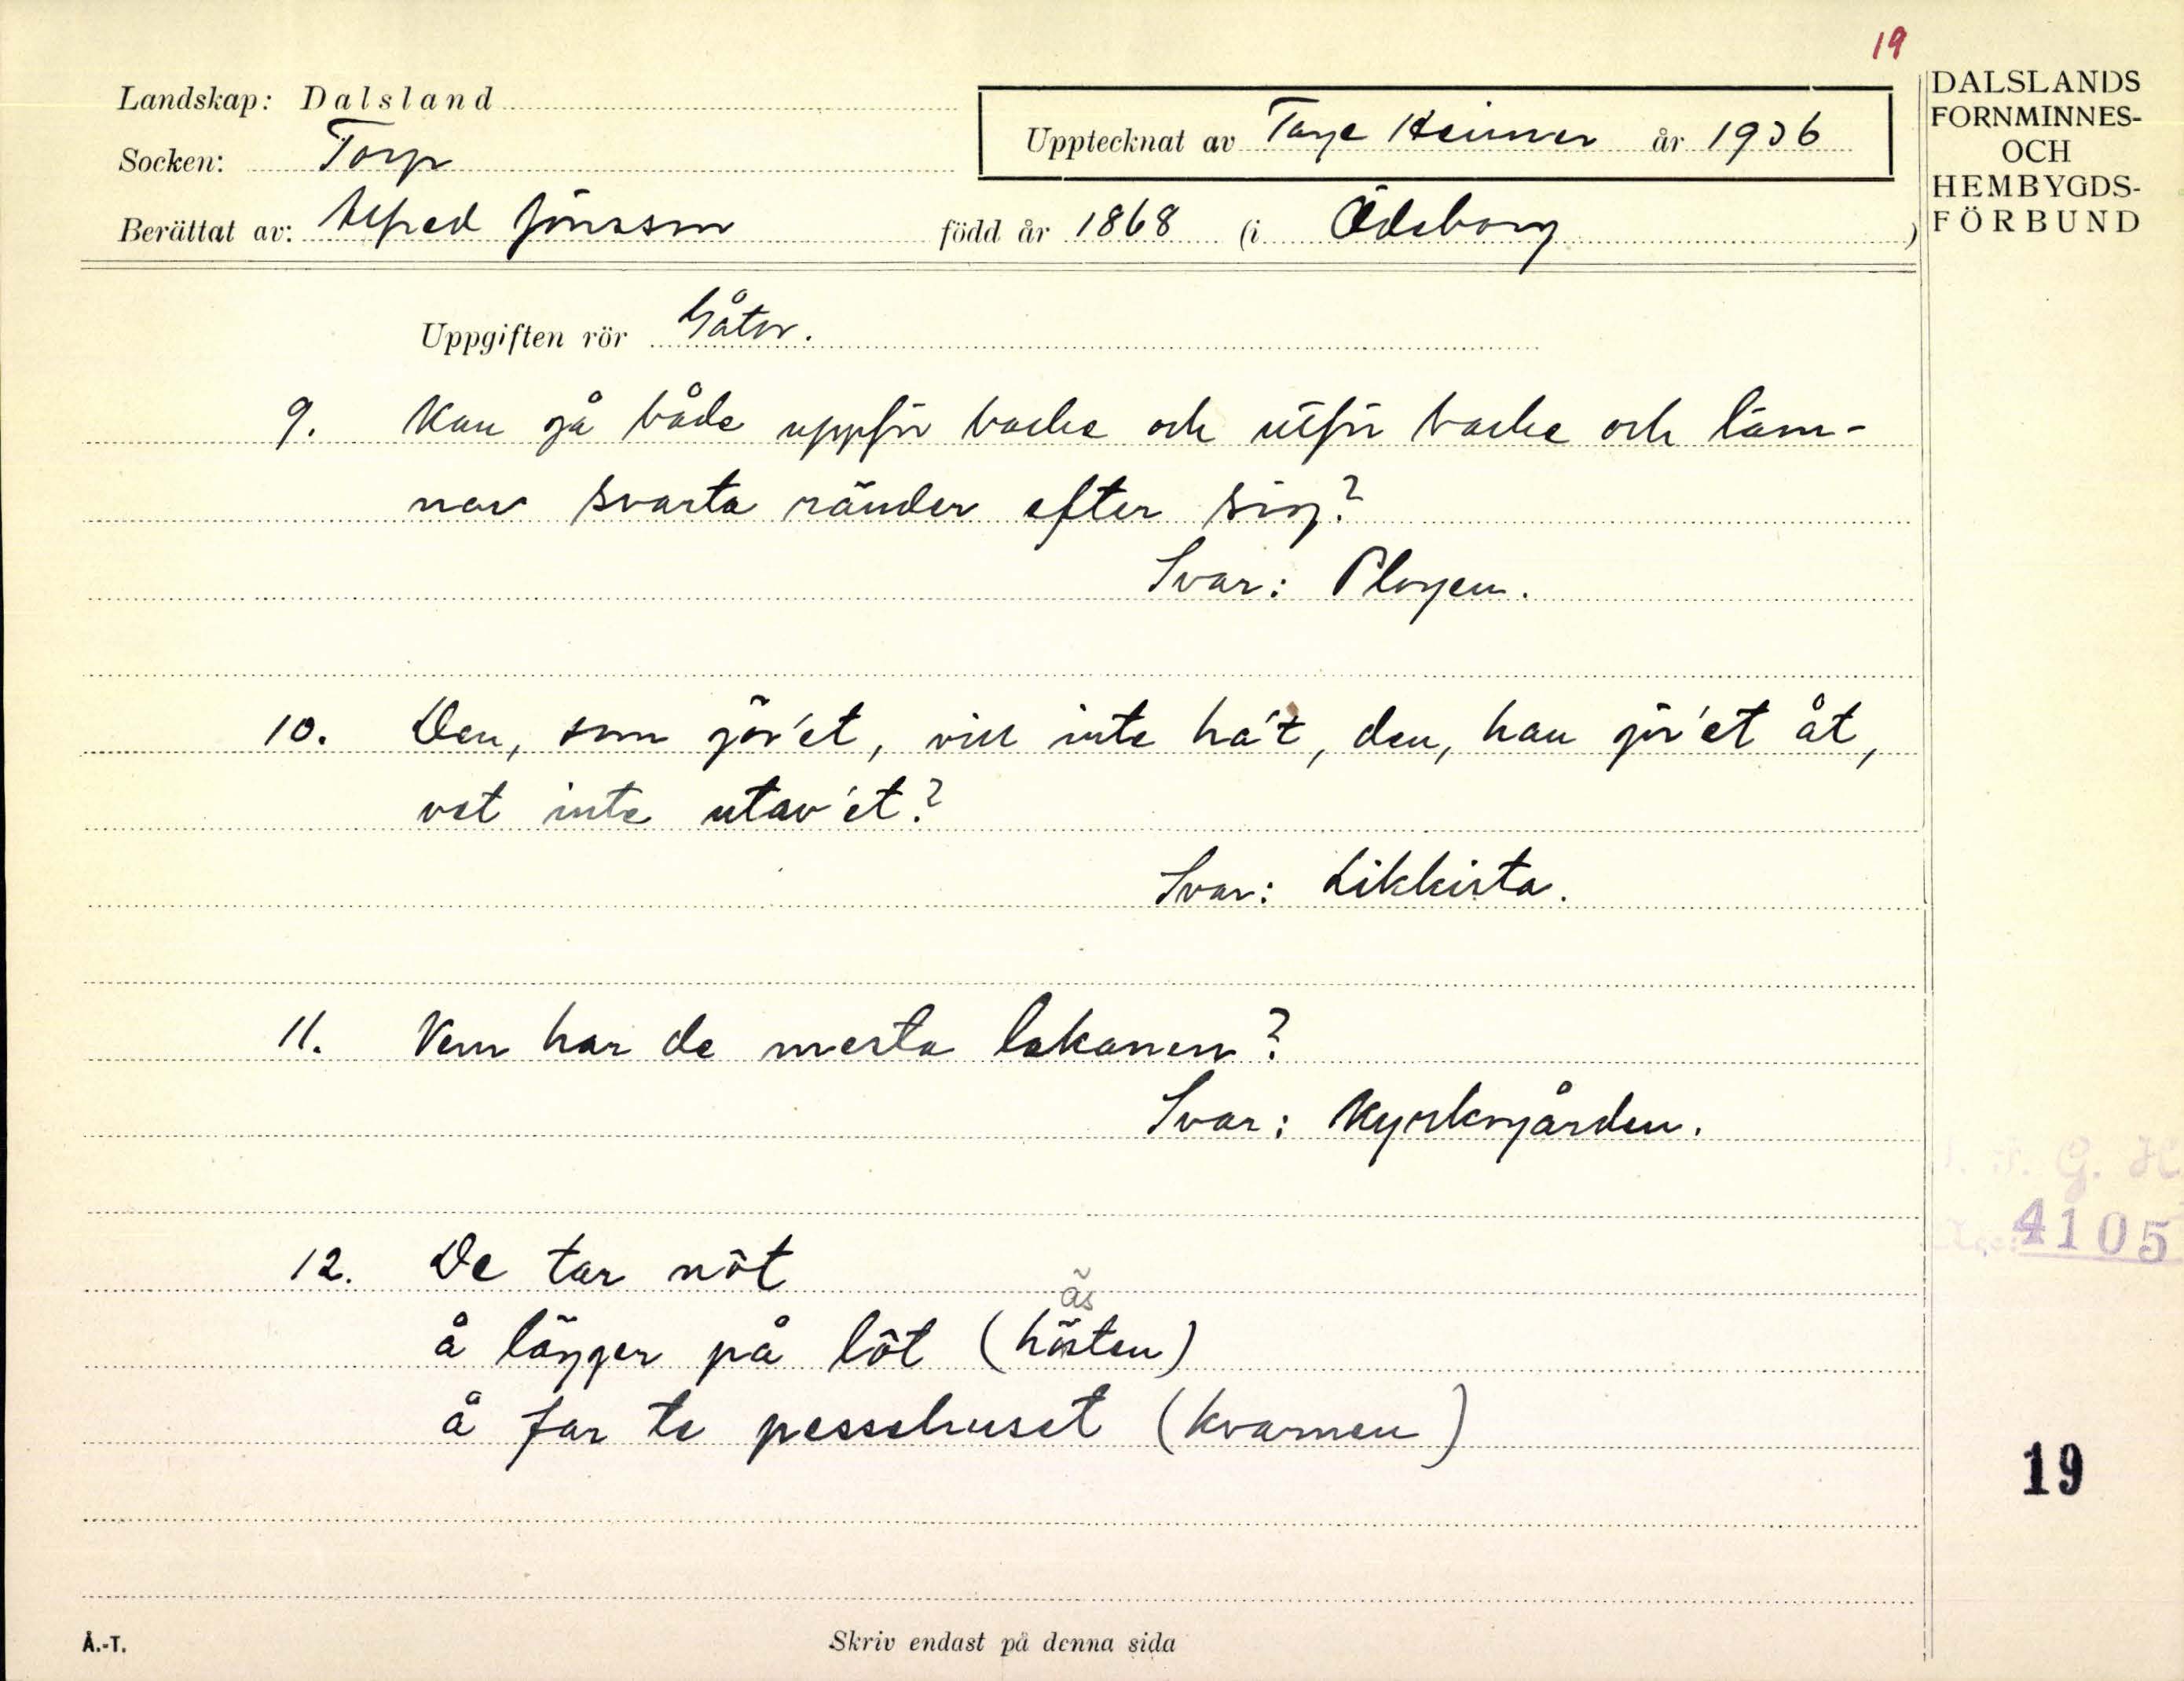 19
Landskap: Dalsland
Upptecknat av Tage Heimer år 1936
Socken: Torp
Berättat av: Alfred Jonsson född år 1868 (i Ödeborg)
DALSLANDS
FORNMINNES-
OCH
HEMBYGDS-
FÖRBUND
Uppgiften rör Gåtor.
9. Kan gå både uppför backe och utför backe och läm-
nar svarta ränder efter sig?
Svar: Plogen.
10. Den, som gör'et, vill inte ha't, den, han gör'et åt,
vet inte utav'et?
Svar: Likkista.
11. Vem har de mesta lakanen?
Svar: Kyrkogården.
12. De tar nöt
å lägger på löt (hästen)
å far te pessehuset (kvarnen)
4105
19
Å.-T.
Skriv endast på denna sida